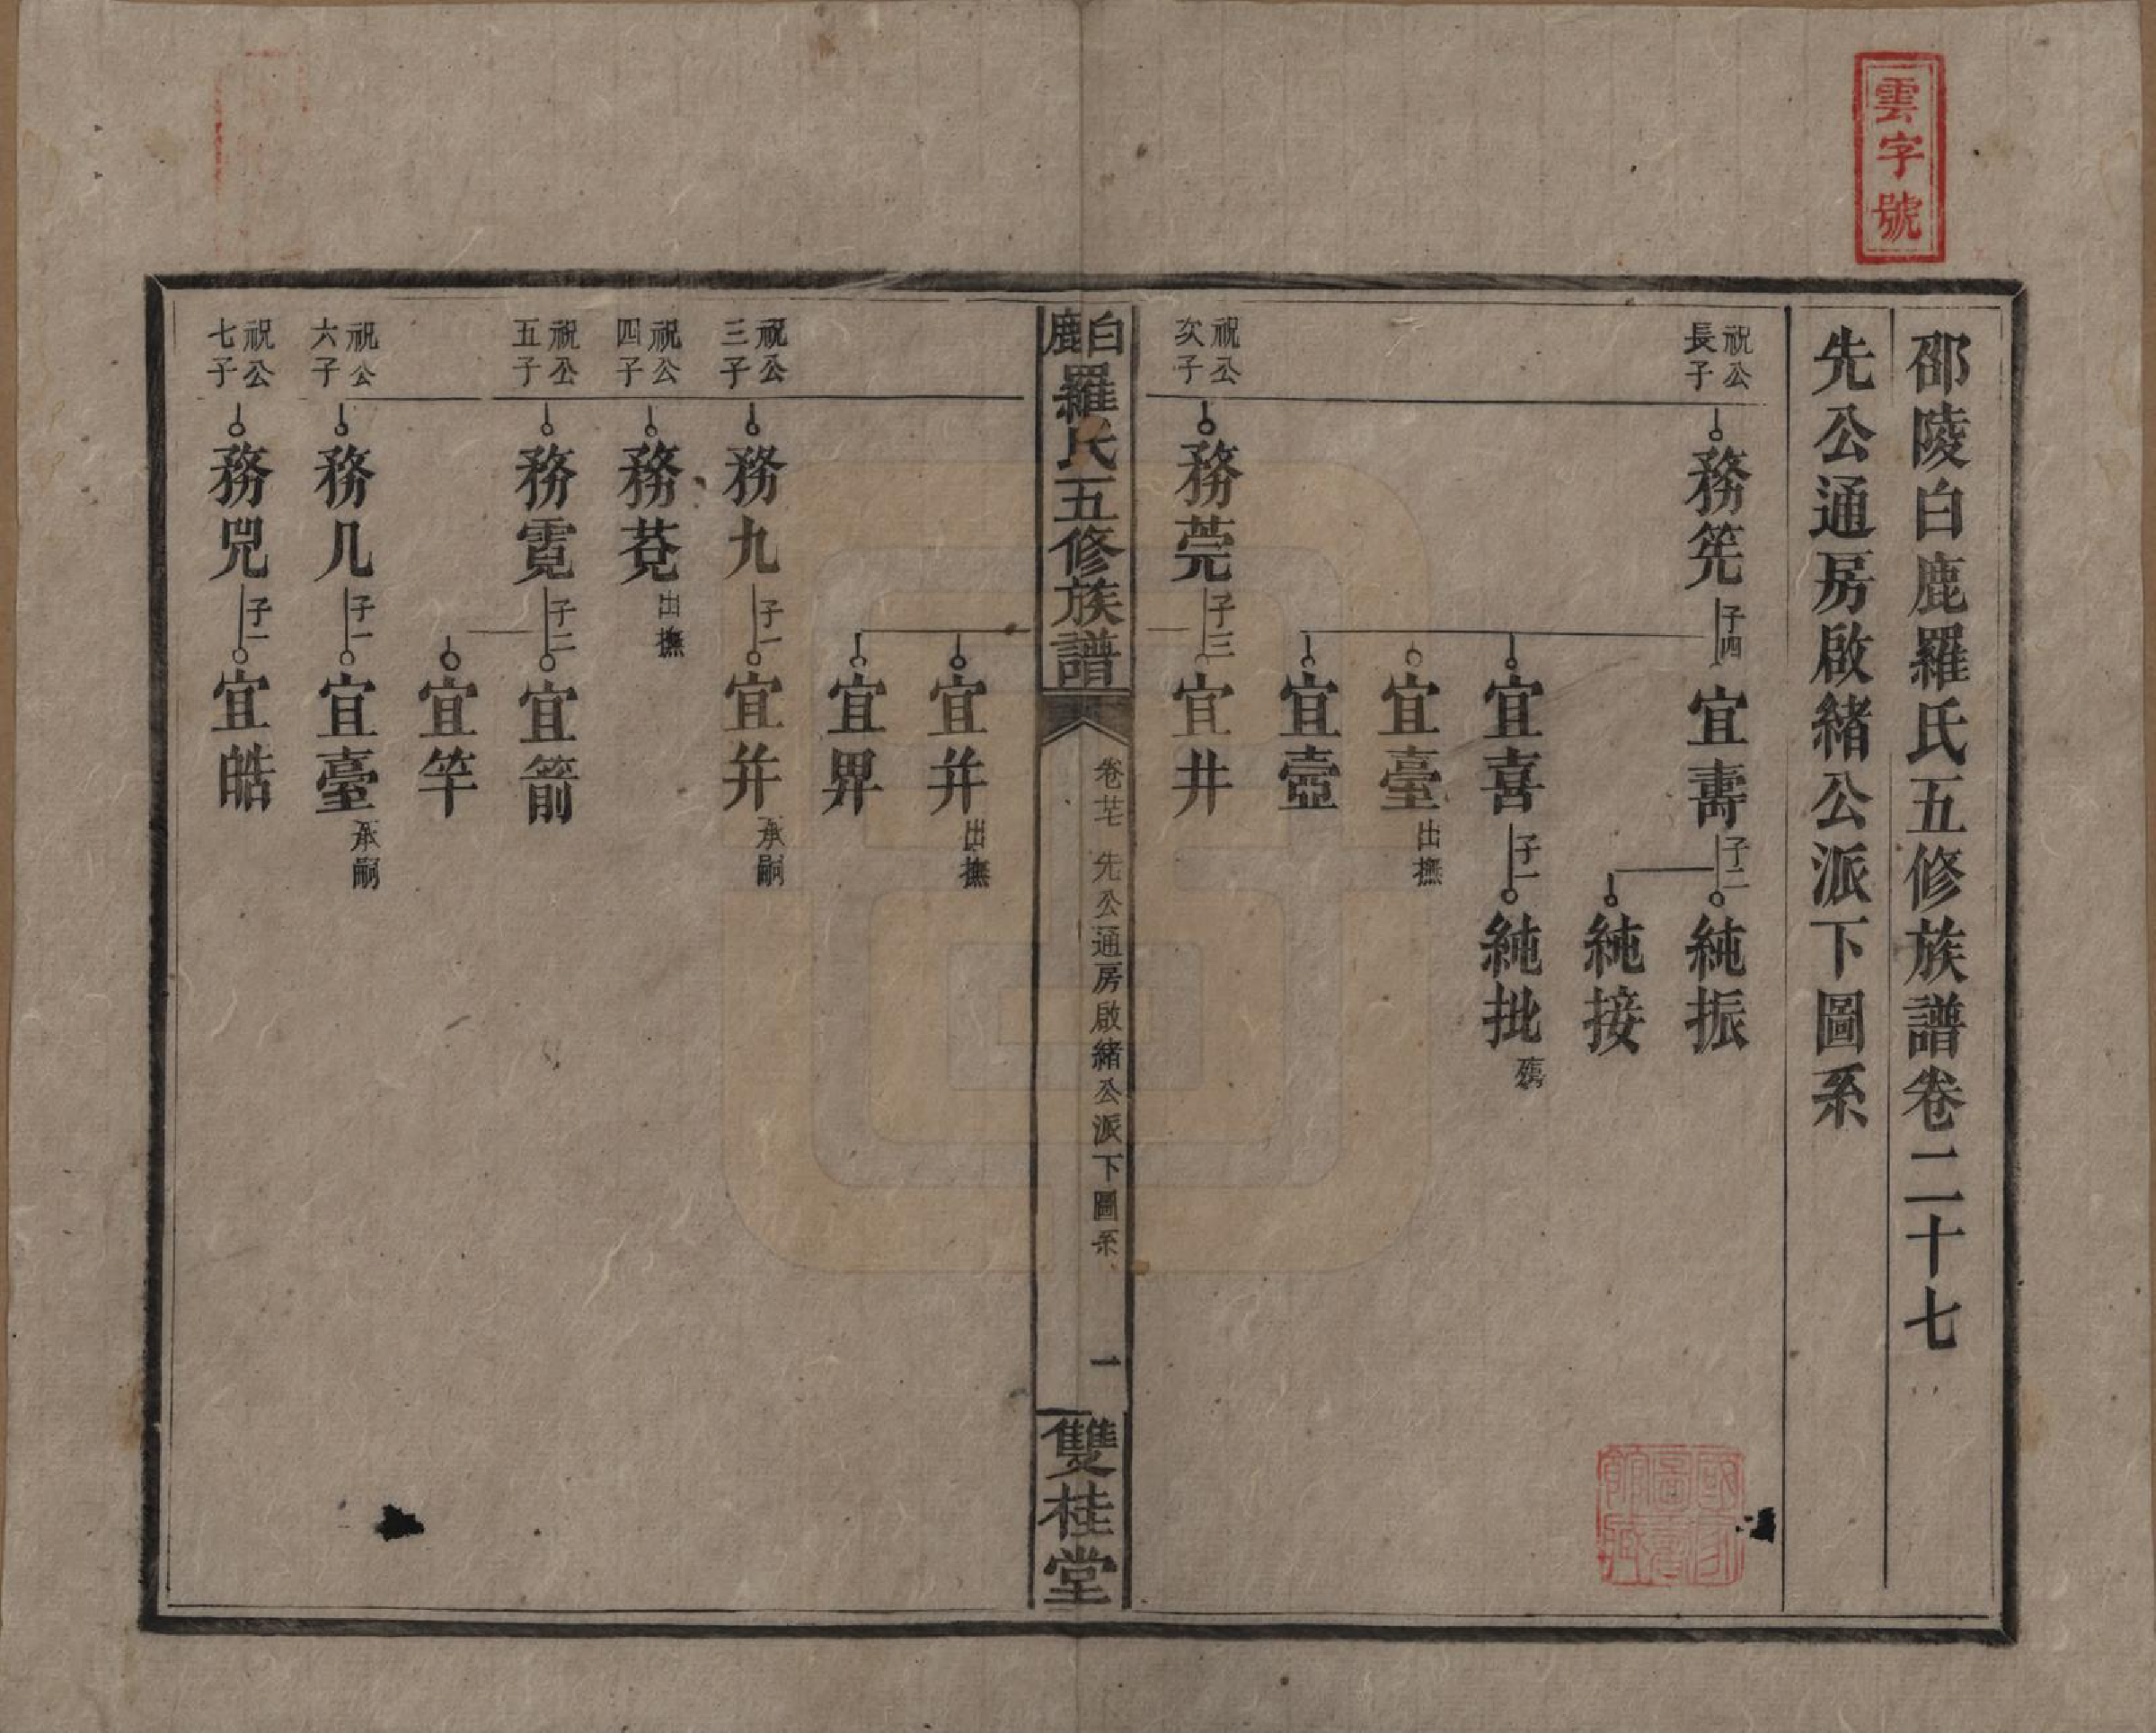 雲字號
邵陵白鹿羅氏五修族譜卷二十七
先公通房啟緒公派下圖系
祝公長子 務筅 子四 宜壽 子二 純振
純接
宜喜 子一 純批 殤
宜臺 出撫
宜壺
祝公次子 務莞 子三 宜井
白鹿羅氏五修族譜 卷廿七 先公通房啟緒公派下圖系 一 雙桂堂
宜并 出撫
宜畀
祝公三子 務九 子一 宜并 承嗣
祝公四子 務萖 出撫
祝公五子 務霓 子二 宜箭
宜竿
祝公六子 務几 子一 宜臺 承嗣
祝公七子 務兕 子一 宜皓
國家圖書館藏